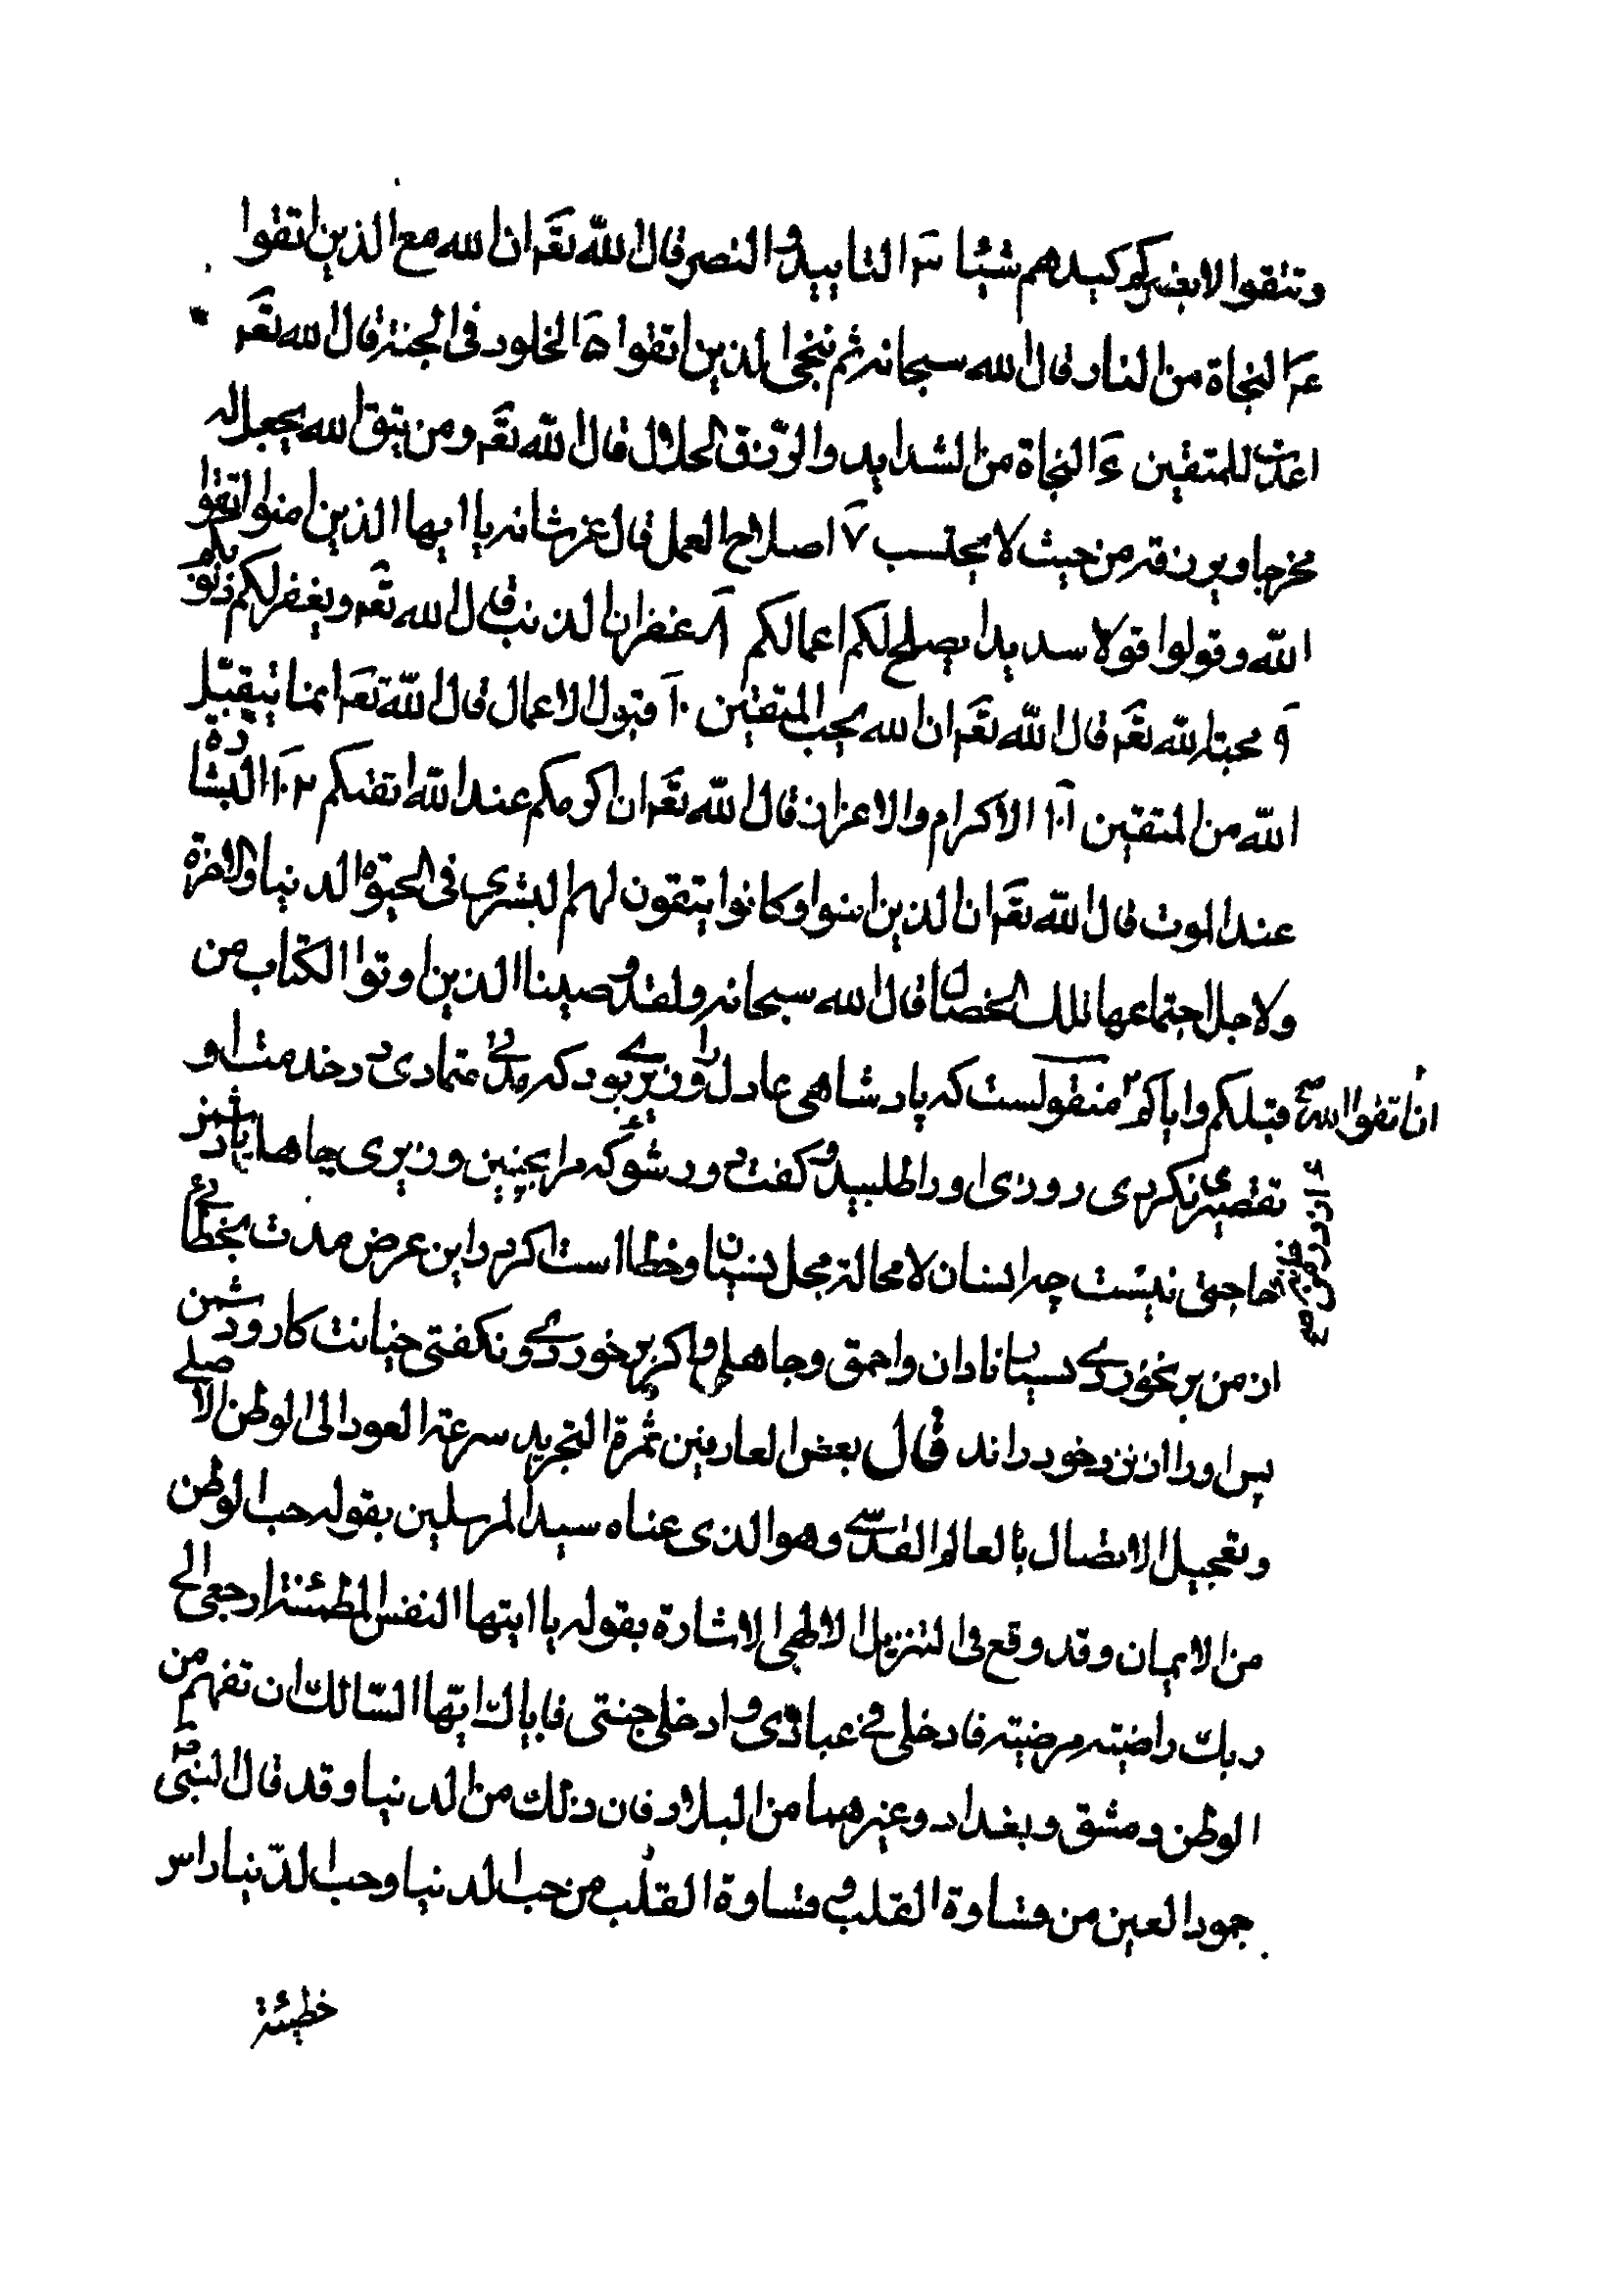 وتتقوا لا يضركم كيدهم شيئا ٣ التاييد والنصر قال الله تعه ان الله مع الذين اتقوا
ع النجاة من النار قال الله سبحانه ثم ننجى الذين اتقوا ۵ الخلود فى الجنة قال الله تعه
اعدت للمتقين ع النجاة من الشدايد والرزق الحلال قال الله تعه ومن يتق الله يجعل له
مخرجا ويرزقه من حيث لا يحتسب ٧ اصلاح العمل قال عز شانه يا ايها الذين امنوا اتقوا
الله وقولوا قولا سديدا يصلح لكم اعمالكم ٨ غفران الذنب قال الله تعه ويغفر لكم ذنوبكم
٩ محبة الله تعه قال الله تعه ان الله يحب المتقين ١٠ قبول الاعمال قال الله تعه انما يتقبل
الله من المتقين ١١ الاكرام والاعزاز قال الله تعه ان اكرمكم عند الله اتقيكم ١٢ البشارة
عند الموت قال الله تعه ان الذين امنوا وكانوا يتقون لهم البشرى فى الحيوة الدنيا والاخرة
ولاجل اجتماعها تلك الخصال قال الله سبحانه ولقد وصينا الذين اوتوا الكتاب من
قبلكم واياكم ان اتقوا الله منقولست كه پادشاهى عادل را وزيرے بود كه مدتے متمادى در خدمت او
تقصيرى نكردى روزى اورا طلبيد و كفت دور شو كه مرا بچنين وزيرى جاهل يا دشمن
حاجتى نيست چه انسان لا محالة محل نسيان وخطا است اكر در اين عرض مدت بخطائے
از من بر نخوردے بسيار نادان واحمق وجاهلى و اكر بر خوردے ونكفتى خيانت كار ودشمن
پس اورا از نزد خود راند قال بعض العارفين ثمرة التجريد سرعة العود الى الوطن الاصلے
وتعجيل الاتصال بالعالم القدسے وهو الذى عناه سيد المرسلين بقوله حب الوطن
من الايمان وقد وقع فى التنزيل الالهى الاشارة بقوله يا ايتها النفس المطمئنة ارجعى الى
ربك راضية مرضية فادخلى فى عبادى و ادخلى جنتى فاياك ايها السالك ان تفهم من
الوطن دمشق وبغداد وغيرهما من البلاد فان ذلك من الدنيا وقد قال النبى ص
جمود العين من قساوة القلب و قساوة القلب من حب الدنيا وحب الدنيا راس
خطيئة